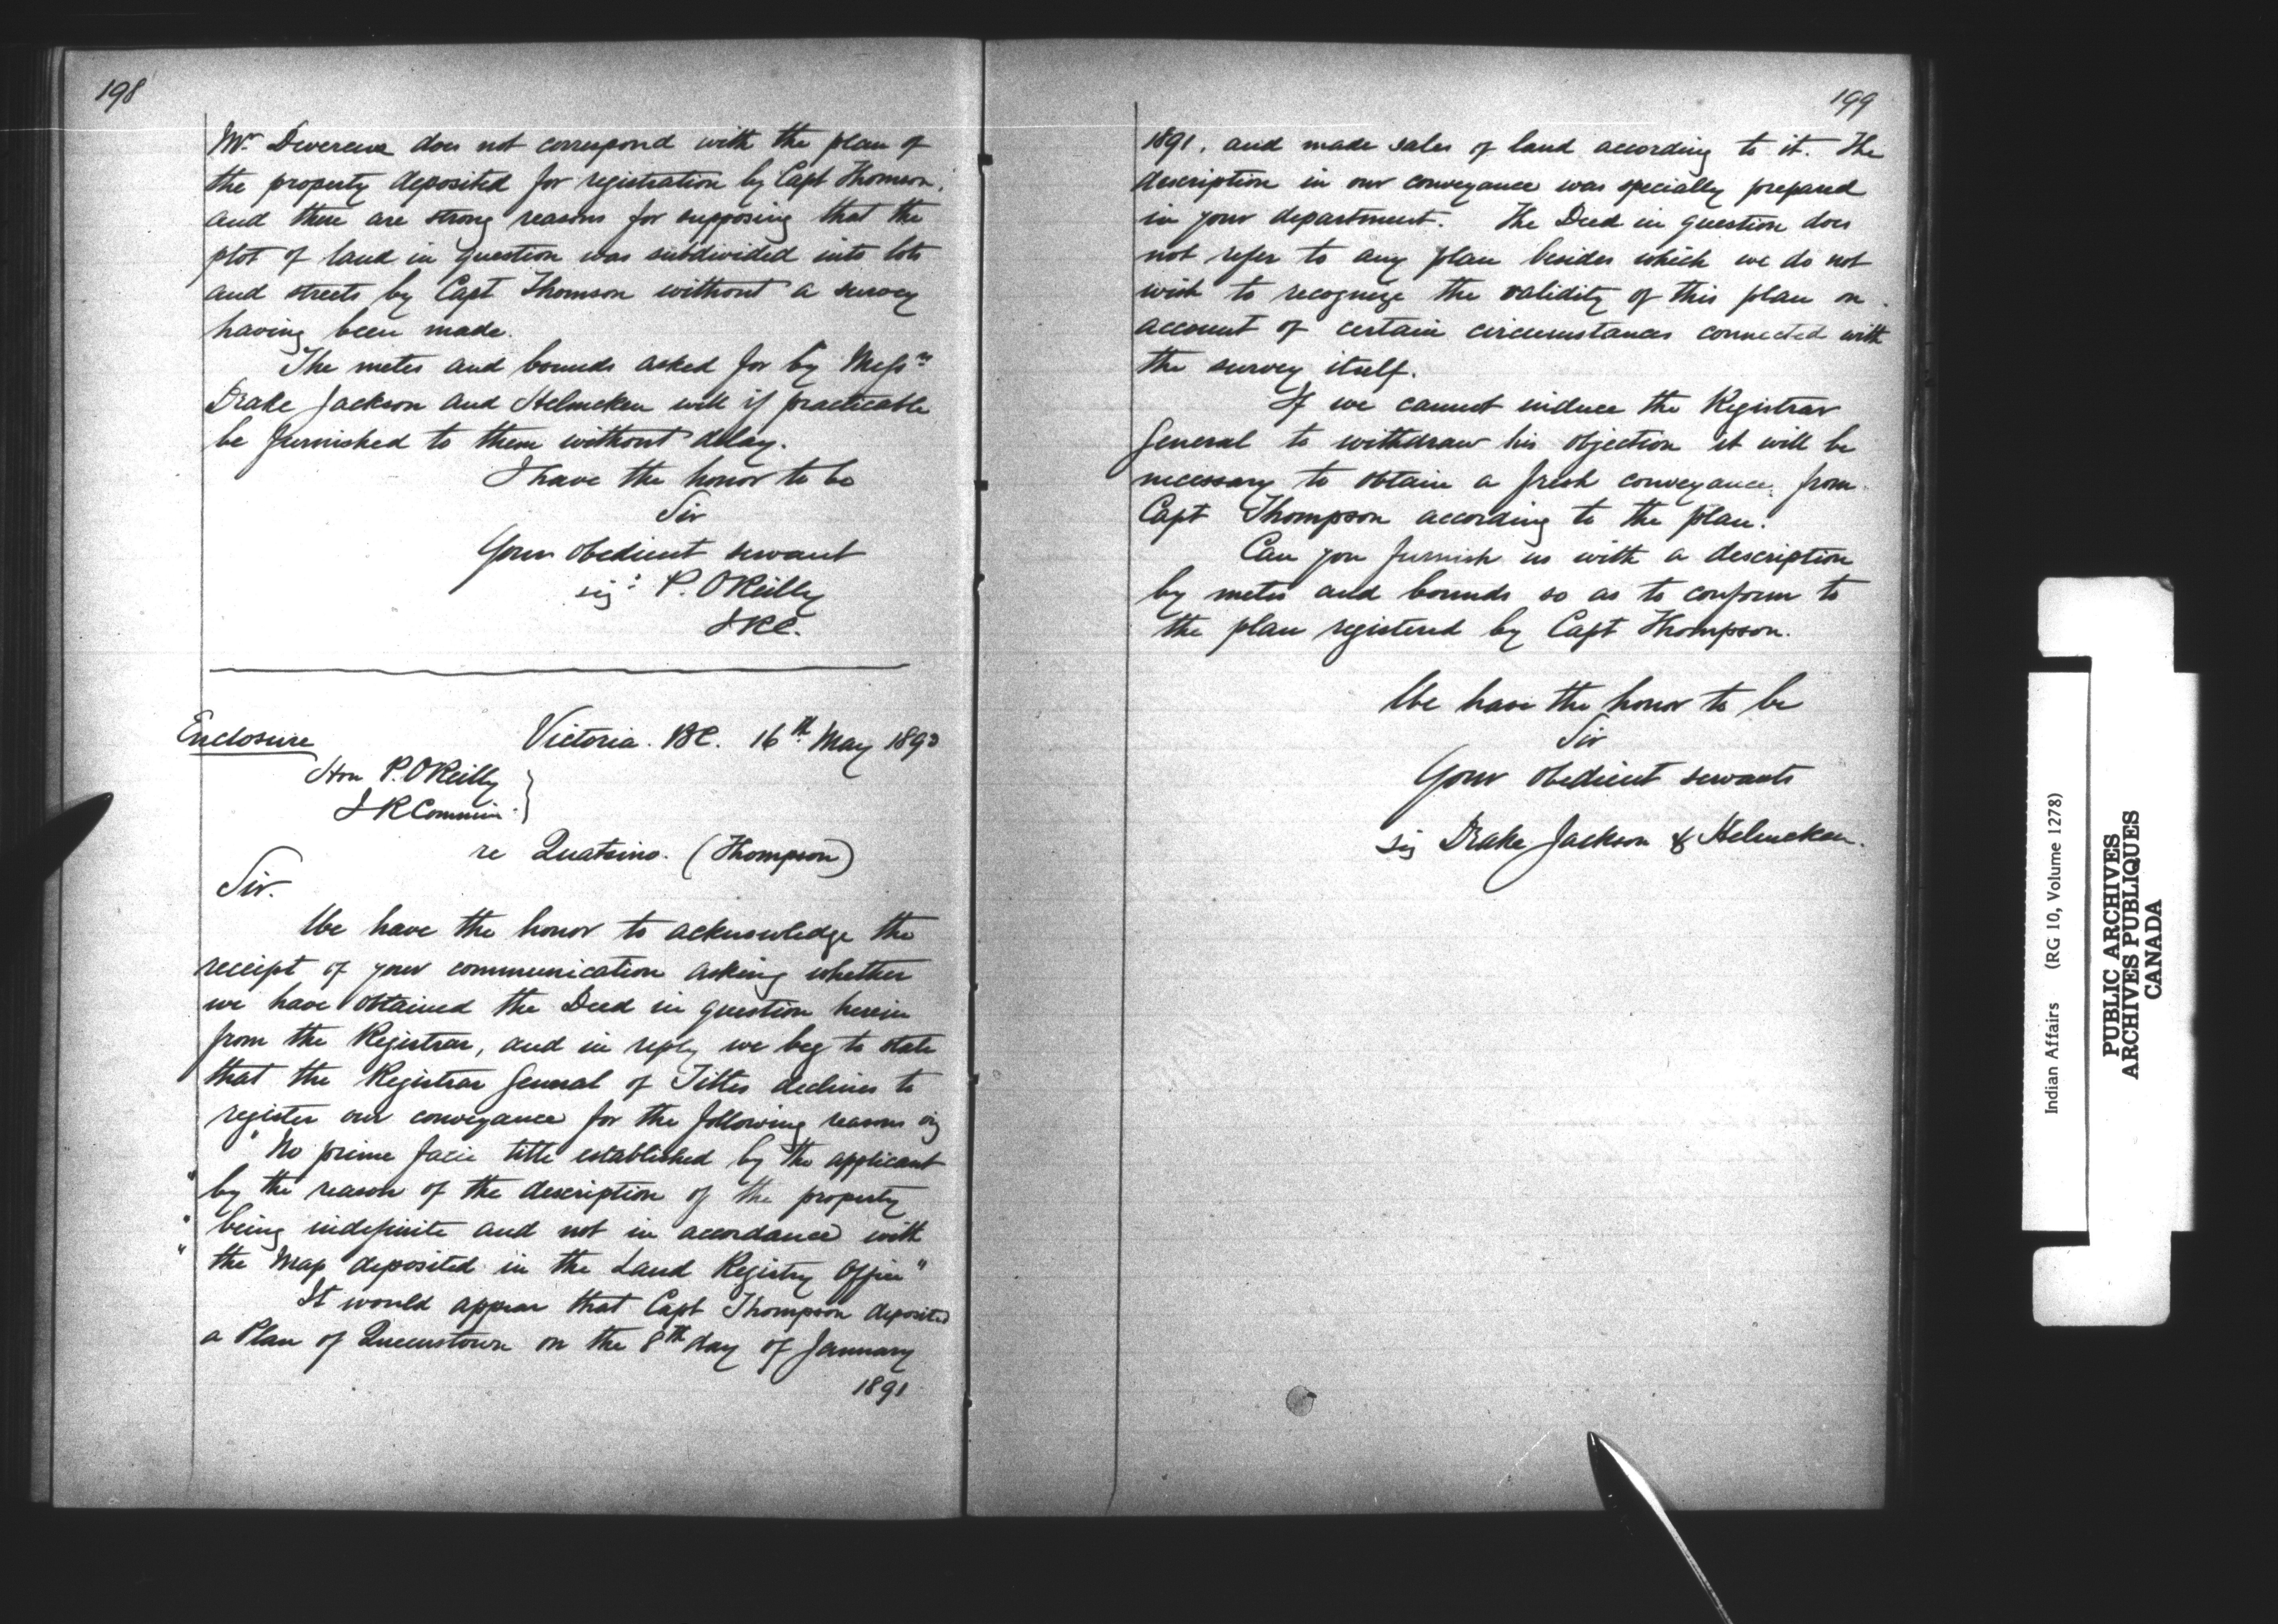 198
Mr. Devereux does not correspond with the plan of
the property deposited for registration by Capt Thomson,
and there are strong reasons for supposing that the
plot of land in question was subdivided into lots
and streets by Capt Thomson without a survey
having been made.
The metes and bounds asked for by Messrs
Drake Jackson and Helmcken will if practicable
be furnished to them without delay.
I have the honor to be
Sir
Your obedient servant
sig: P. OReilly
I.R.C.
Enclosure
Victoria. BC. 16th May 1893
Hon P. OReilly
I R Commr
re Quatsino. (Thompson)
Sir.
We have the honor to acknowledge the
receipt of your communication asking whether
we have obtained the Deed in question herein
from the Registrar, and in reply we beg to state
that the Registrar General of Titles declines to
register our conveyance for the following reasons viz
" No prime facie title established by the applicant
" by the reason of the description of the property
" being indefinite and not in accordance with
" the Map deposited in the Land Registry Office"
It would appear that Capt Thompson deposited
a Plan of Queenstown on the 8th day of January
1891
199
1891, and made sales of land according to it. The
description in our conveyance was specially prepared
in your department. The Deed in question does
not refer to any plan besides which we do not
wish to recognize the validity of this plan on
account of certain circumstances connected with
the survey itself.
If we cannot induce the Registrar
General to withdraw his objection it will be
necessary to obtain a fresh conveyance from
Capt Thompson according to the plan.
Can you furnish us with a description
by metes and bounds so as to conform to
the plan registered by Capt Thompson.
We have the honor to be
Sir
Your obedient servants
sig Drake Jackson & Helmcken.
Indian Affairs (RG 10, Volume 1278)
PUBLIC ARCHIVES
ARCHIVES PUBLIQUES
CANADA